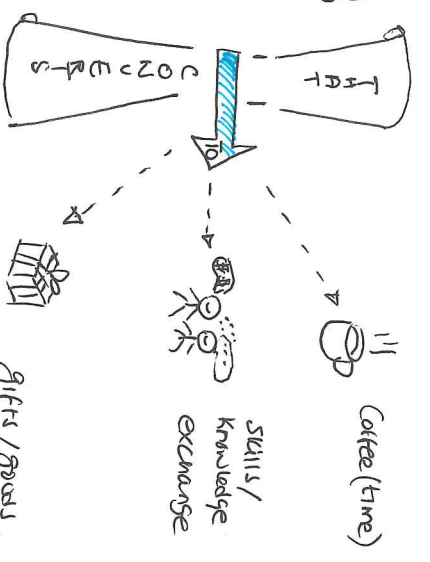 THAT
CONVERTS
TO
Coffee (time)
Skills/
knowledge
exchange
gifts / goods